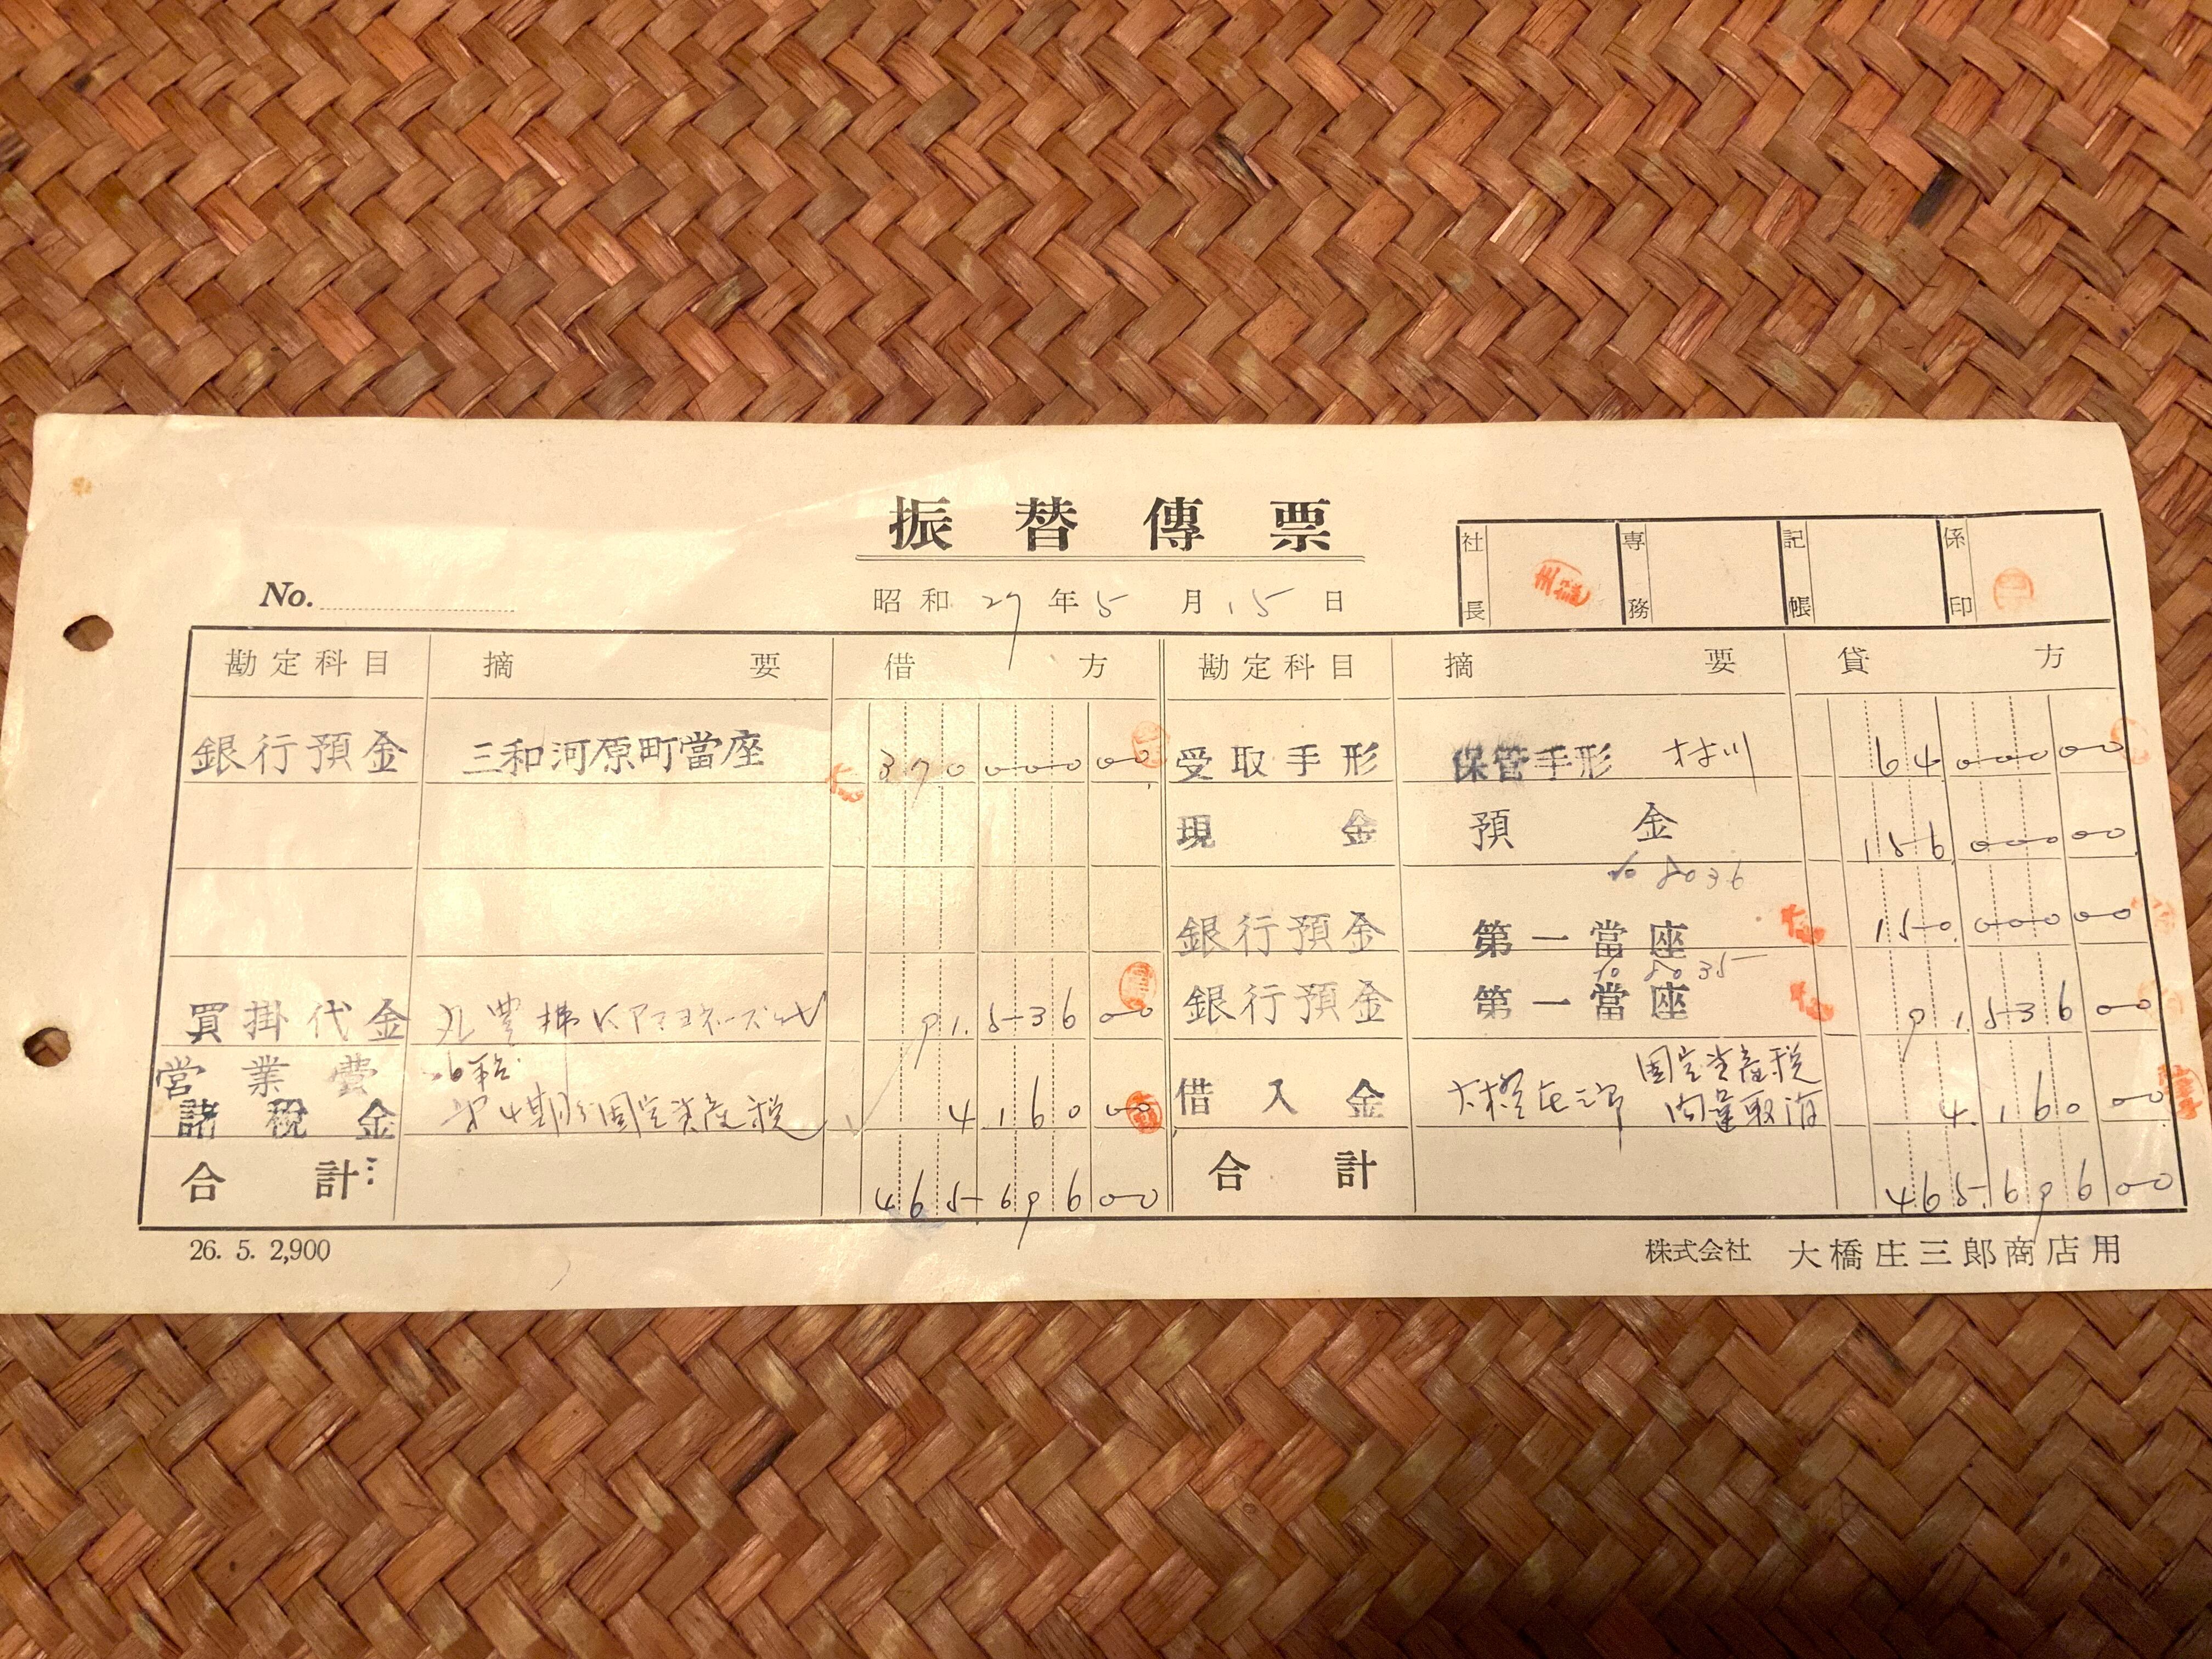 振替傳票
No.
昭和 27 年 5 月 15 日
社長 専務 記帳 係印
勘定科目 摘要 借方 勘定科目 摘要 貸方
銀行預金 三和河原町當座 370 000 00 受取手形 保管手形 村川 64 000 00
現金 預金 156 000 00
8036
銀行預金 第一當座 150 000 00
8035
買掛代金 マヨネーズ代 91.536 00 銀行預金 第一當座 91.536 00
営業費
諸税金 第4期分固定資産税 4 160 00 借入金 大橋 固定資産税 取消 4.160 00
合計 465 696 00 合計 465.696 00
26. 5. 2,900
株式会社 大橋庄三郎商店用